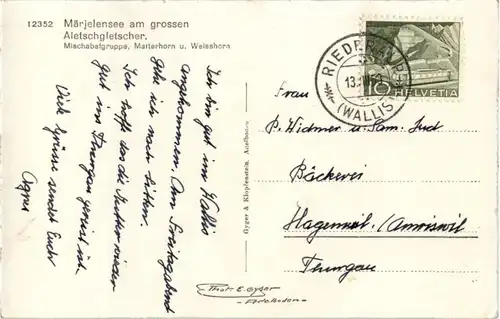 12352 Märjelensee am grossen
Aletschgletscher.
Mischabelgruppe, Matterhorn u. Weisshorn
Ich bin gut im Wallis
angekommen. Am Freitagabend
gehe ich nach Sitten.
Ich hoffe das die Mutter wieder
gut im Thurgau gereist ist.
Viele Grüsse sendet Euch
Agnes
Gyger & Klopfenstein, Adelboden
RIEDERALP
(WALLIS)
10 HELVETIA
Frau
P. Widmer u. Fam.
Bäckerei
Hagenwil / Amriswil
Thurgau
Phot. E. Gyger
Adelboden